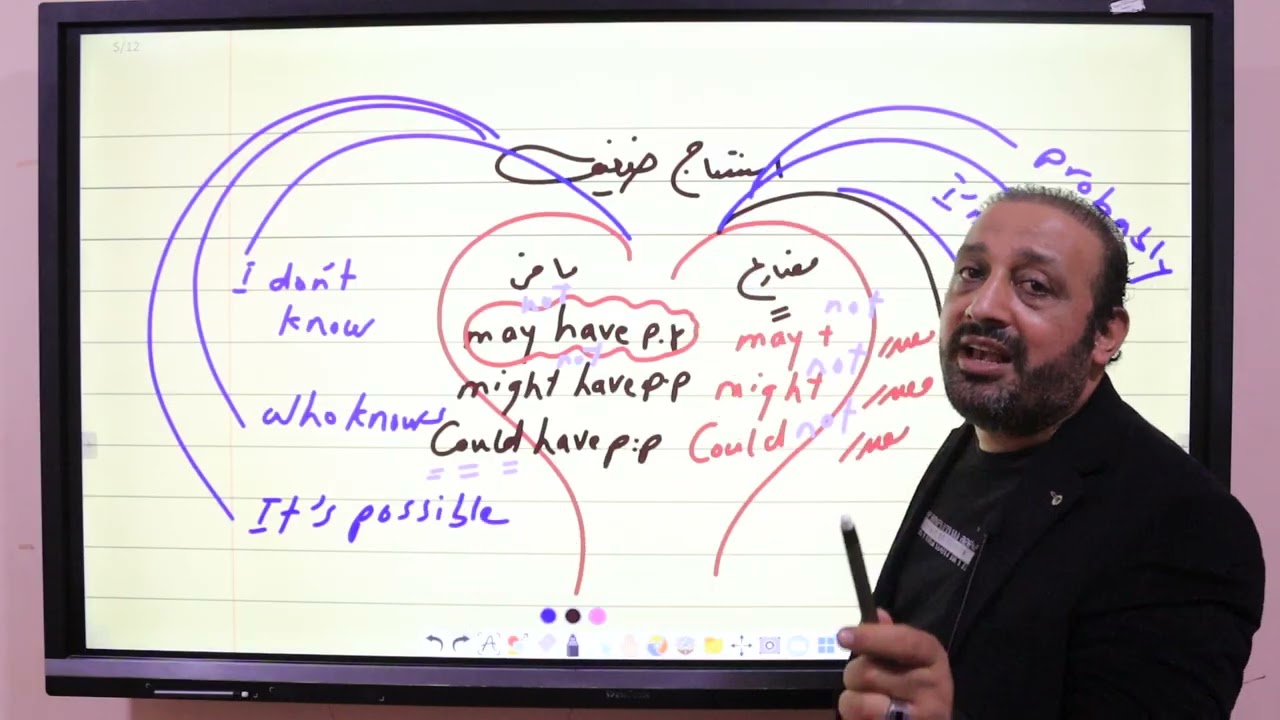 5/12
استنتاج ضعيف
probably
I'm
ماضي
مضارع
I don't
know
not
may have p.p
not
might have p.p
Could have p.p
not
may + /مصدر
not
might /مصدر
not
Could /مصدر
who knows
It's possible